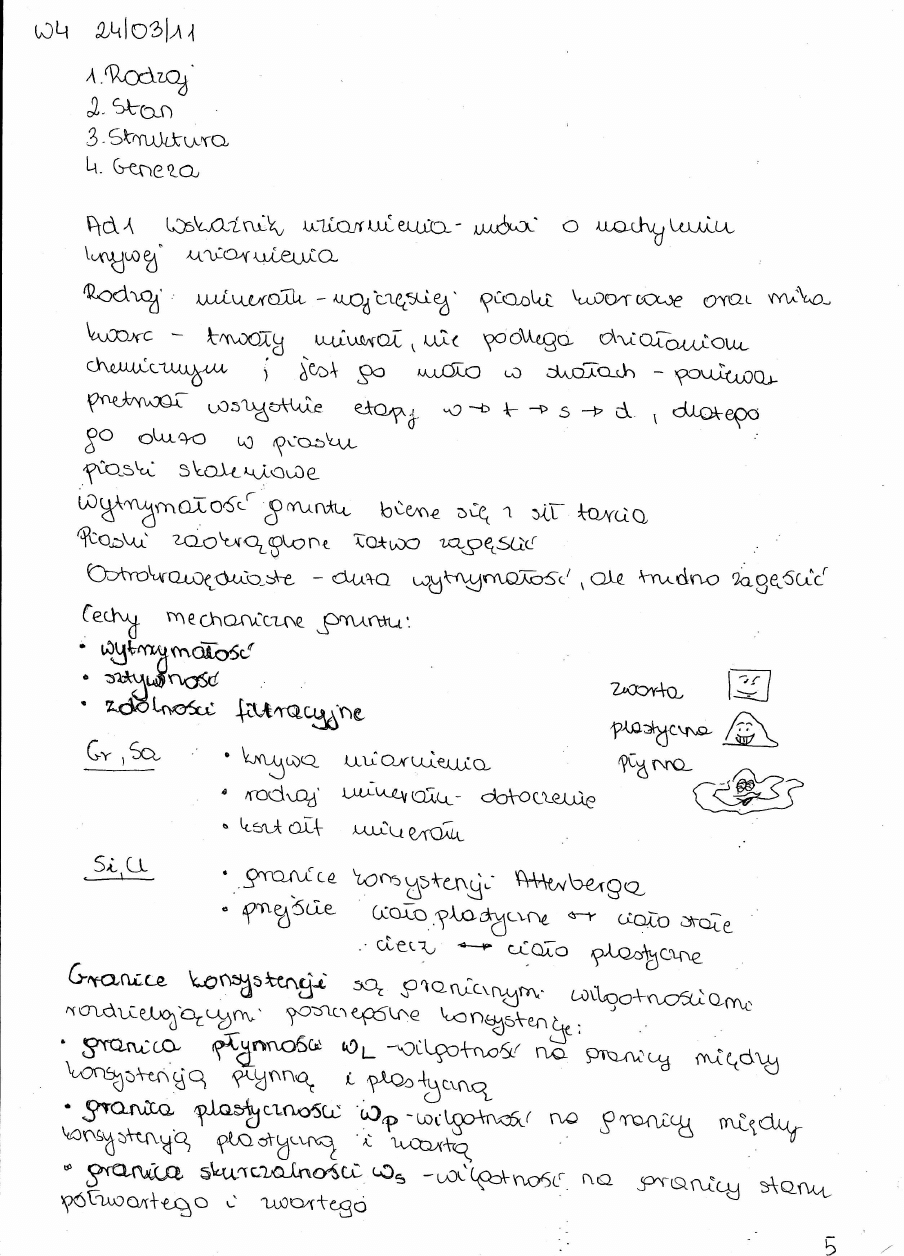 W4 24/03/11
1. Rodzaj
2. Stan
3. Struktura
4. Geneza
Ad1 Wskaźnik uziarnienia - mówi o nachyleniu
krzywej uziarnienia
Rodzaj minerału - najczęściej piaski kwarcowe oraz mika
kwarc - trwały minerał, nie podlega działaniom
chemicznym; jest go mało w skałach - ponieważ
przetrwał wszystkie etapy w → t → s → d, dlatego
go dużo w piasku
piaski skaleniowe
Wytrzymałość gruntu bierze się z sił tarcia
Piaski zaokrąglone łatwo zagęścić
Ostrokrawędziaste - duża wytrzymałość, ale trudno zagęścić
Cechy mechaniczne gruntu:
• wytrzymałość
• sztywność
• zdolności filtracyjne
zwarta
plastyczna
płynna
Gr, Sa
• krzywa uziarnienia
• rodzaj minerału - dotoczenie
• kształt minerału
Si, Cl
• granice konsystencji Atterberga
• przejście ciało plastyczne ↔ ciało stałe
ciecz ↔ ciało plastyczne
Granice konsystencji są granicznymi wilgotnościami
rozdzielającymi poszczególne konsystencje:
• granica płynności wL - wilgotność na granicy między
konsystencją płynną i plastyczną
• granica plastyczności wp - wilgotność na granicy między
konsystencją plastyczną i zwartą
• granica skurczalności ws - wilgotność na granicy stanu
półzwartego i zwartego
5